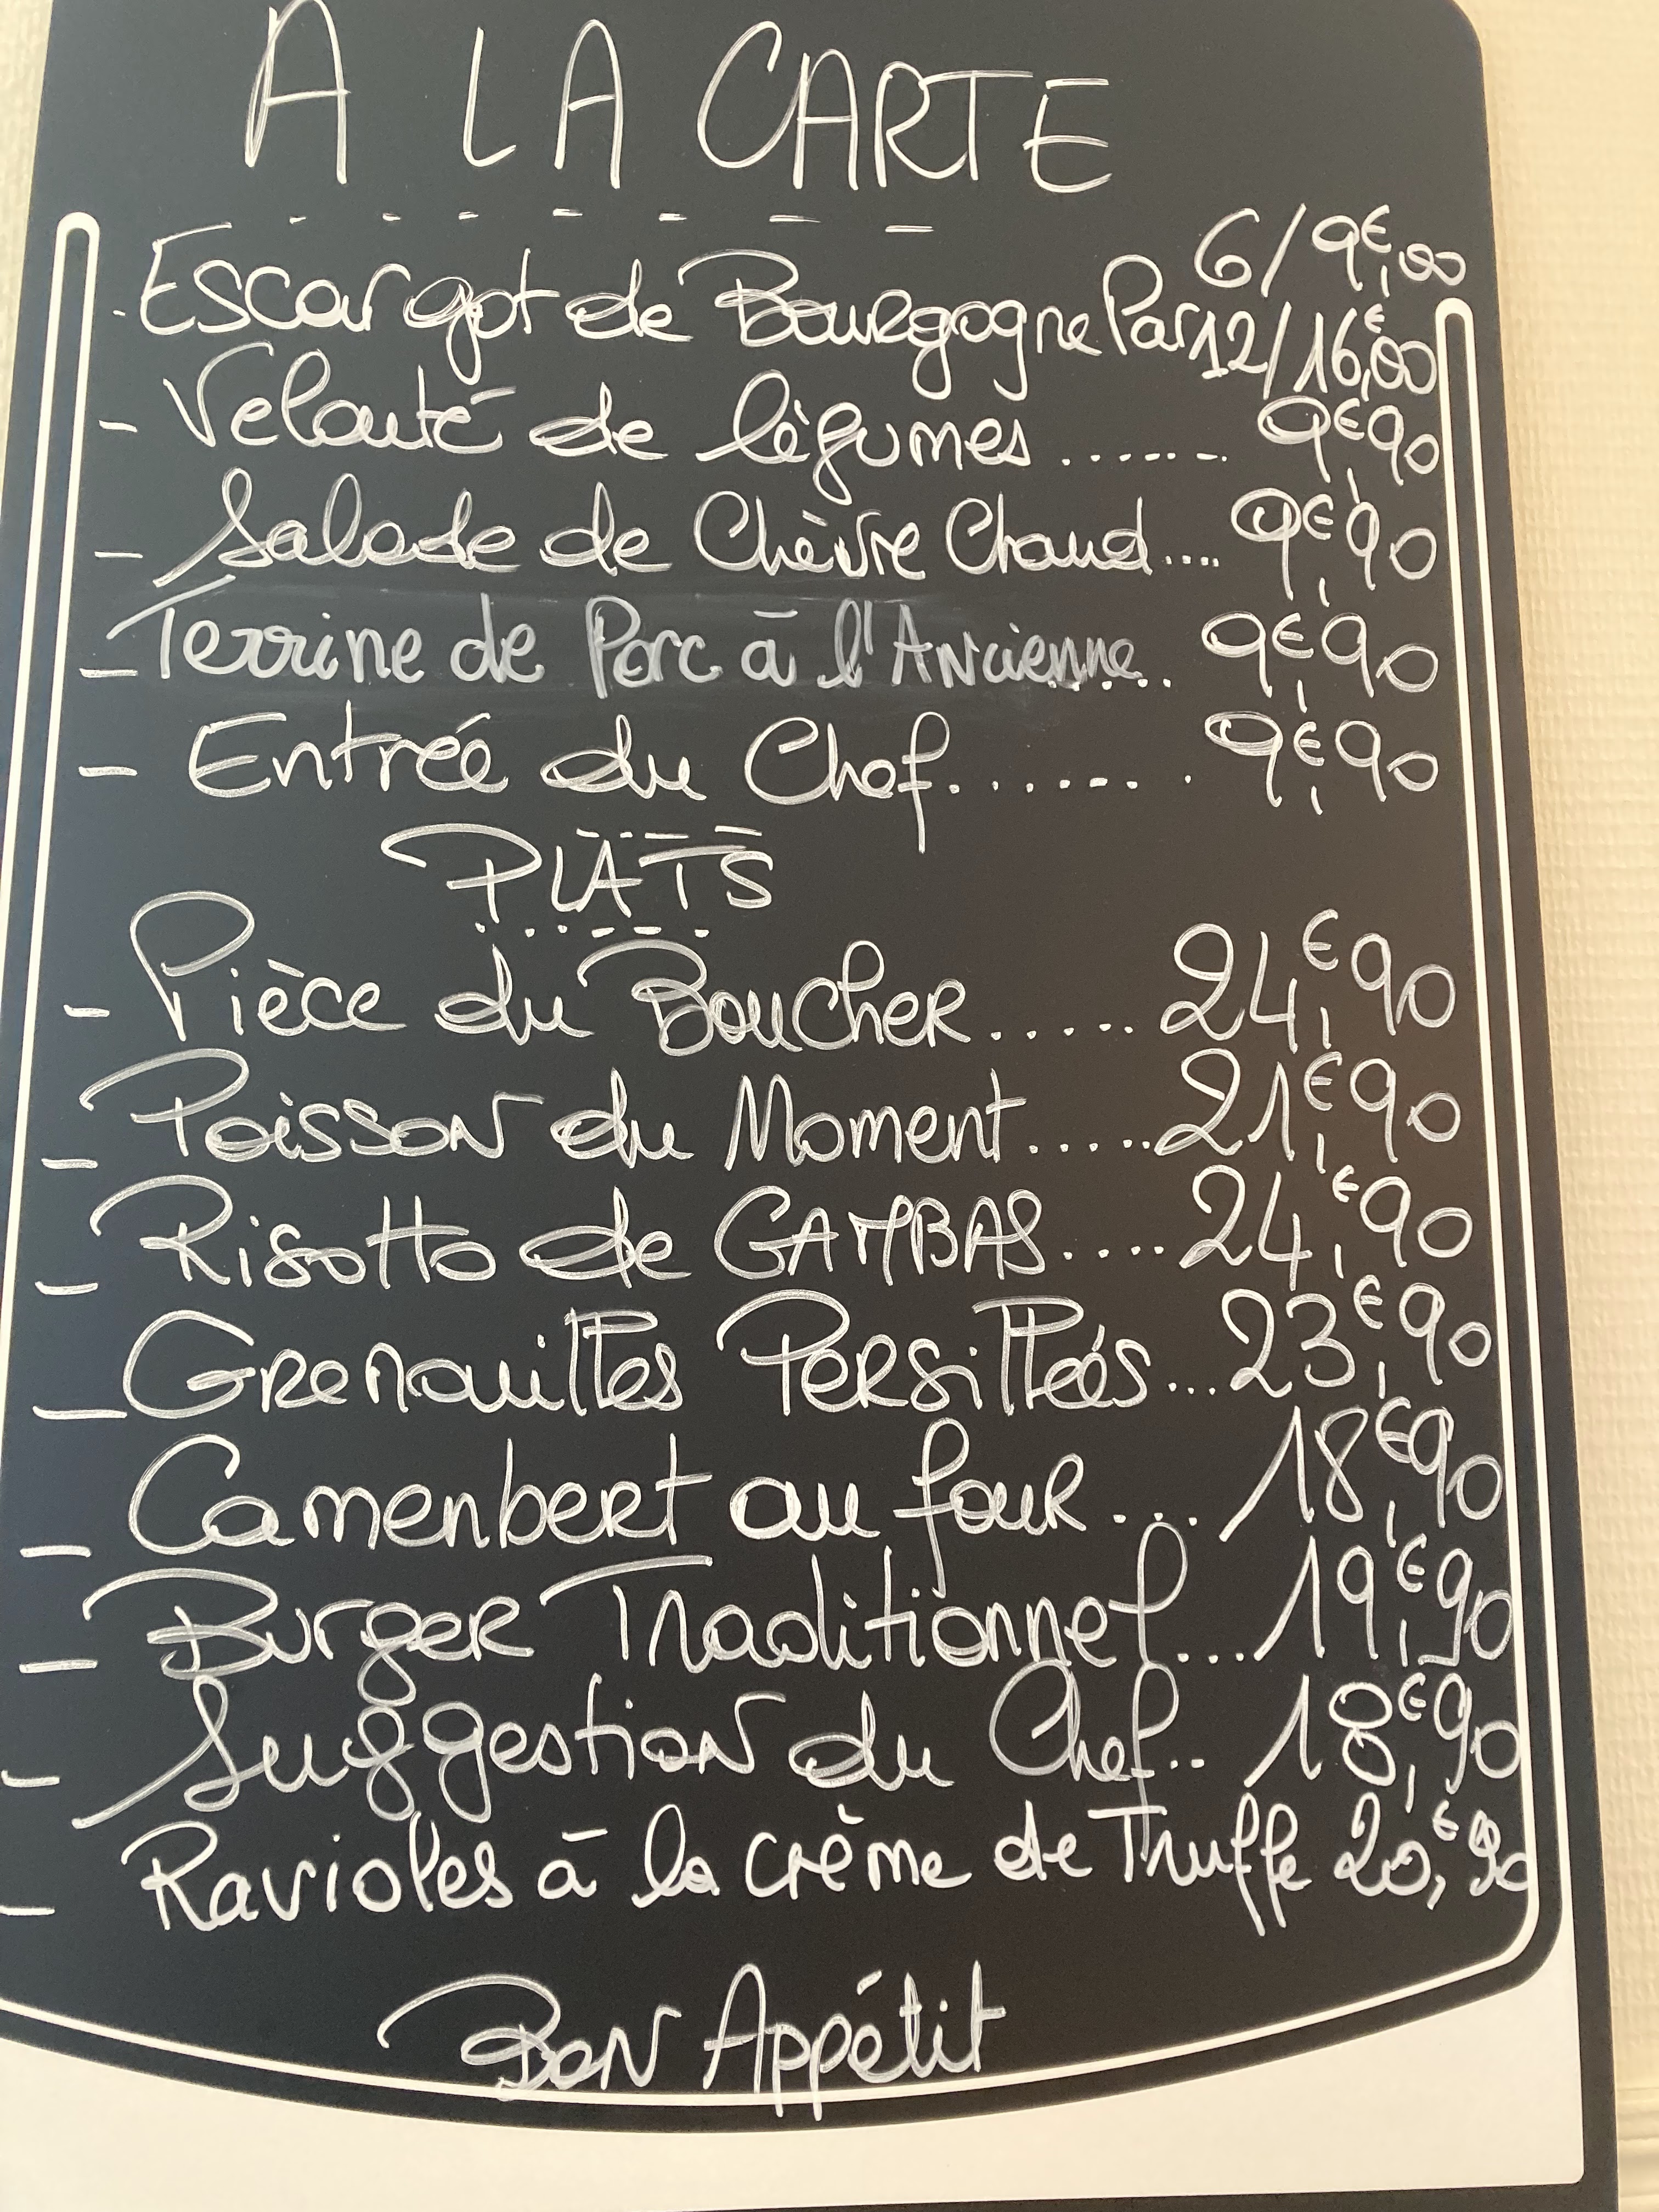 A LA CARTE
6/9€,00
. Escargot de Bourgogne Par 12/16€,00
- Velouté de légumes ....... 9€,90
- Salade de Chèvre Chaud.... 9€,90
- Terrine de Porc à l'Ancienne.... 9€,90
- Entrée du Chef....... . 9€,90
PLATS
- Pièce du Boucher..... 24,€90
- Poisson du Moment..... 21,€90
- Risotto de GAMBAS.... 24,€90
- Grenouilles Persillées... 23,€90
- Camenbert au four... 18,€90
- Burger Traditionnel... 19,€90
- Suggestion du Chef.. 18,€90
- Ravioles à la crème de Truffe 20,€90
Bon Appétit